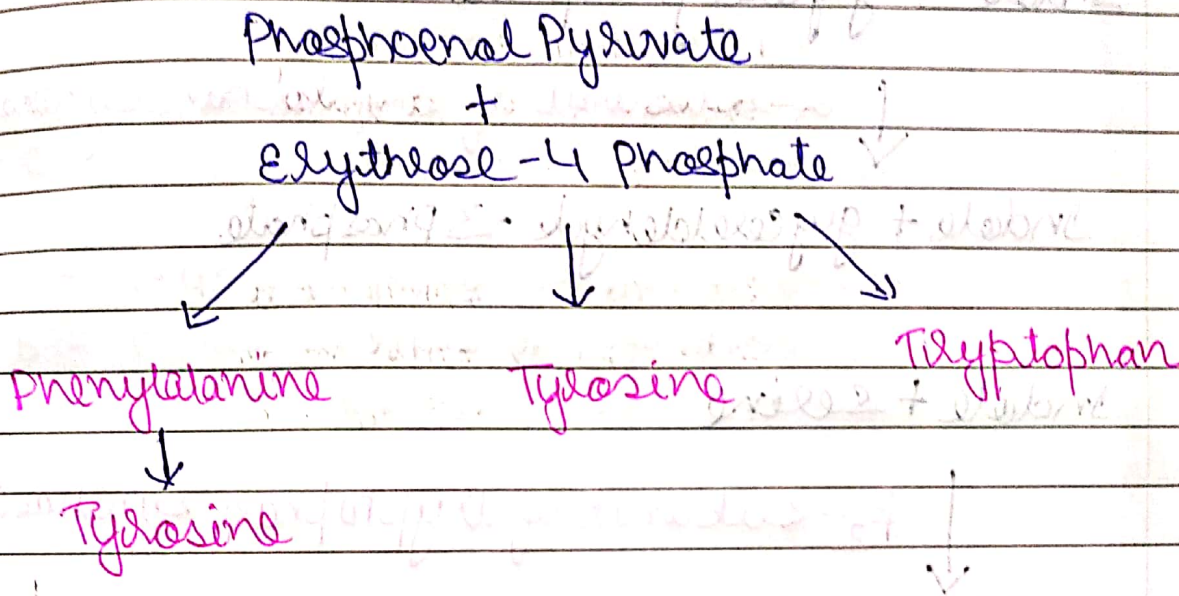 Phosphoenol Pyruvate
+
Erythrose-4 phosphate
Phenylalanine Tyrosine Tryptophan
Tyrosine